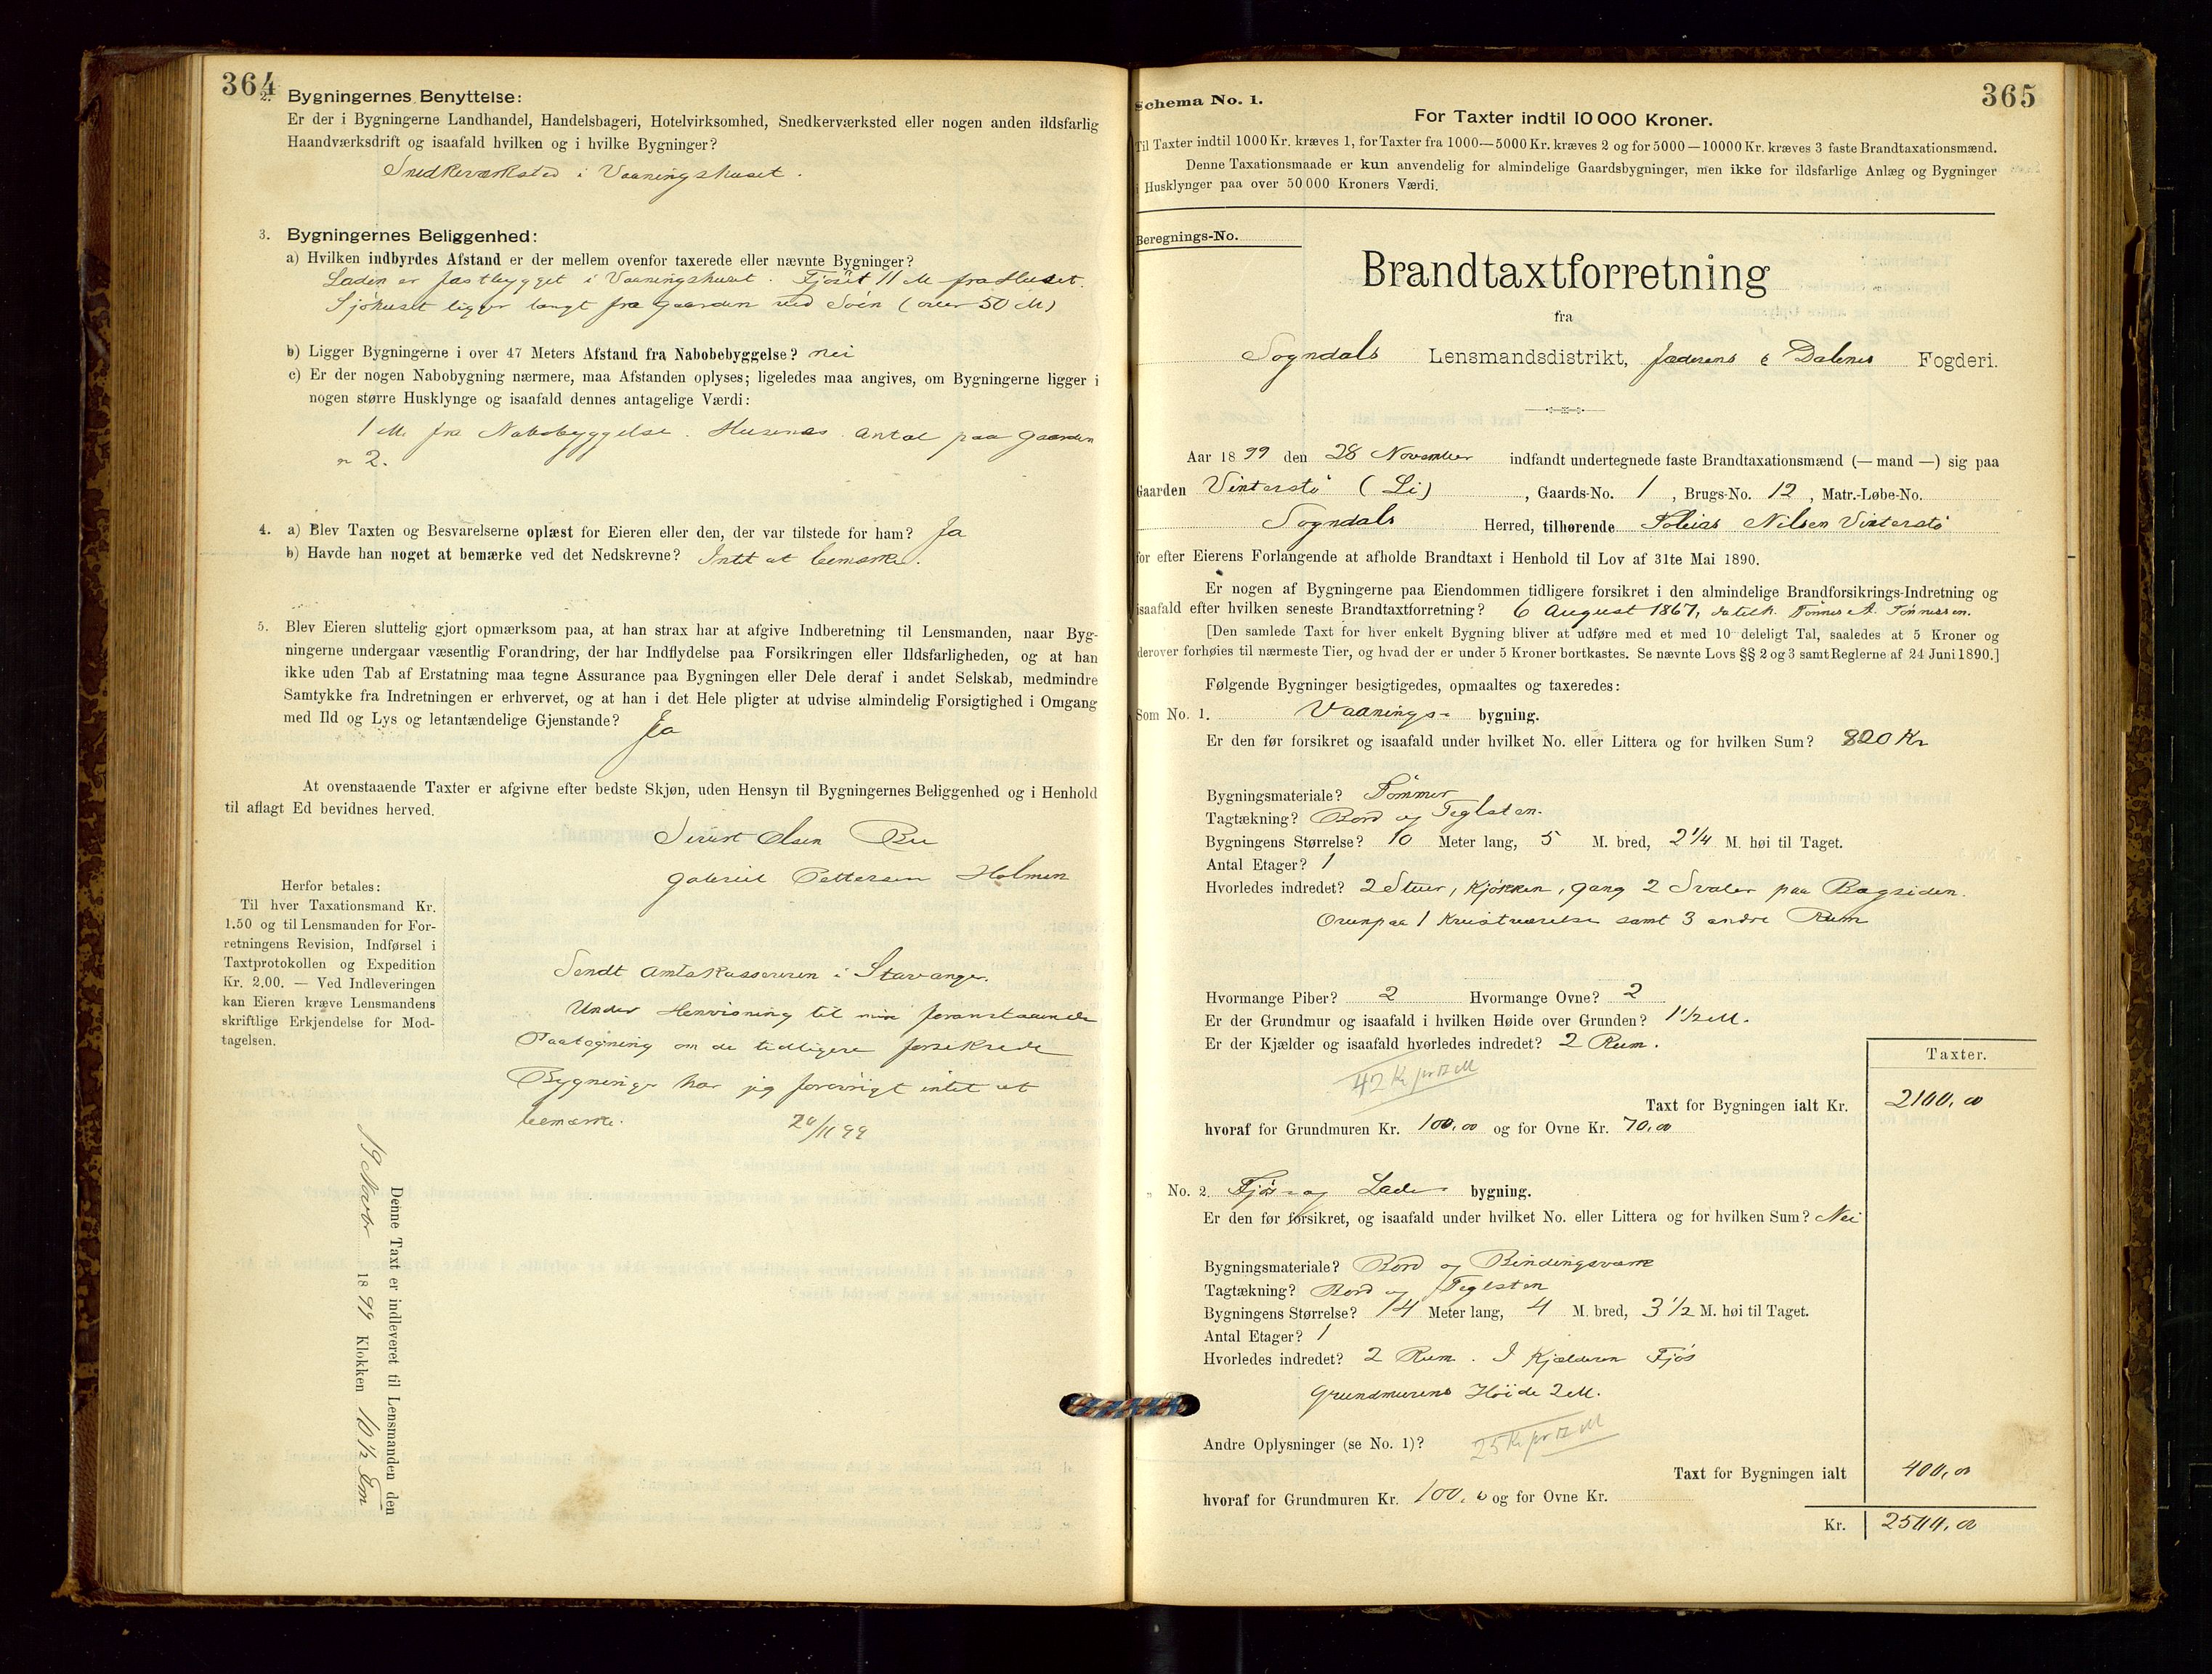 364
2. Bygningernes Benyttelse:
Er der i Bygningerne Landhandel, Handelsbageri, Hotelvirksomhed, Snedkerværksted eller nogen anden ildsfarlig
Haandværksdrift og isaafald hvilken og i hvilke Bygninger?
Snedkerværksted i Vaaningshuset.
3. Bygningernes Beliggenhed:
a) Hvilken indbyrdes Afstand er der mellem ovenfor taxerede eller nævnte Bygninger?
Laden er fastbygget i Vaaningshuset. Fjøset 11 M fra Huset.
Sjøhuset ligger langt fra Gaarden ved Søen (over 50 M)
b) Ligger Bygningerne i over 47 Meters Afstand fra Nabobebyggelse? nei
c) Er der nogen Nabobygning nærmere, maa Afstanden oplyses; ligeledes maa angives, om Bygningerne ligger i
nogen større Husklynge og isaafald dennes antagelige Værdi:
1 M. fra Nabobyggelse. Husenes Antal paa Gaarden
er 2.
4. a) Blev Taxten og Besvarelserne oplæst for Eieren eller den, der var tilstede for ham? Ja
b) Havde han noget at bemærke ved det Nedskrevne? Intet at bemærke.
5. Blev Eieren sluttelig gjort opmærksom paa, at han strax har at afgive Indberetning til Lensmanden, naar Byg-
ningerne undergaar væsentlig Forandring, der har Indflydelse paa Forsikringen eller Ildsfarligheden, og at han
ikke uden Tab af Erstatning maa tegne Assurance paa Bygningen eller Dele deraf i andet Selskab, medmindre
Samtykke fra Indretningen er erhvervet, og at han i det Hele pligter at udvise almindelig Forsigtighed i Omgang
med Ild og Lys og letantændelige Gjenstande? Ja
At ovenstaaende Taxter er afgivne efter bedste Skjøn, uden Hensyn til Bygningernes Beliggenhed og i Henhold
til aflagt Ed bevidnes herved.
Olsen Bu
Gabriel Pettersen Holmen
Herfor betales:
Til hver Taxationsmand Kr.
1.50 og til Lensmanden for For-
retningens Revision, Indførsel i
Taxtprotokollen og Expedition
Kr. 2.00. — Ved Indleveringen
kan Eieren kræve Lensmandens
skriftlige Erkjendelse for Mod-
tagelsen.
Sendt Amtskassereren i Stavanger.
Under Henvisning til min foranstaaende
Paategning om de tidligere forsikrede
Bygninger har jeg forøvrigt intet at
bemærke. /11 99
Denne Taxt er indleveret til Lensmanden den
1899 Klokken 10 1/2 Em
365
Schema No. 1.
For Taxter indtil 10 000 Kroner.
Til Taxter indtil 1000 Kr. kræves 1, for Taxter fra 1000—5000 Kr. kræves 2 og for 5000—10000 Kr. kræves 3 faste Brandtaxationsmænd.
Denne Taxationsmaade er kun anvendelig for almindelige Gaardsbygninger, men ikke for ildsfarlige Anlæg og Bygninger
i Husklynger paa over 50 000 Kroners Værdi.
Beregnings-No.
Brandtaxtforretning
fra
Sogndals Lensmandsdistrikt, Jæderens & Dalenes Fogderi.
Aar 1899 den 28 November indfandt undertegnede faste Brandtaxationsmænd (— mand —) sig paa
Gaarden Vinterstø (Li), Gaards-No. 1, Brugs-No. 12, Matr.-Løbe-No.
Sogndals Herred, tilhørende Tobias Nilsen Vinterstø
for efter Eierens Forlangende at afholde Brandtaxt i Henhold til Lov af 31te Mai 1890.
Er nogen af Bygningerne paa Eiendommen tidligere forsikret i den almindelige Brandforsikrings-Indretning og
isaafald efter hvilken seneste Brandtaxtforretning? 6 August 1867, da tilh. Tønnes A. Tønnessen.
[Den samlede Taxt for hver enkelt Bygning bliver at udføre med et med 10 deleligt Tal, saaledes at 5 Kroner og
derover forhøies til nærmeste Tier, og hvad der er under 5 Kroner bortkastes. Se nævnte Lovs §§ 2 og 3 samt Reglerne af 24 Juni 1890.]
Følgende Bygninger besigtigedes, opmaaltes og taxeredes:
Som No. 1. Vaanings- bygning.
Er den før forsikret og isaafald under hvilket No. eller Littera og for hvilken Sum? 820 Kr
Bygningsmateriale? Tømmer
Tagtækning? Bord og Teglsten.
Bygningens Størrelse? 10 Meter lang, 5 M. bred, 2 1/4 M. høi til Taget.
Antal Etager? 1
Hvorledes indredet? 2 Stuer, Kjøkken, Gang 2 Svaler paa Bagsiden.
Ovenpaa 1 Kvistværelse samt 3 andre Rum
Hvormange Piber? 2 Hvormange Ovne? 2
Er der Grundmur og isaafald i hvilken Høide over Grunden? 1 1/2 M.
Er der Kjælder og isaafald hvorledes indredet? 2 Rum.
42 Kr pr □ M
Taxter.
Taxt for Bygningen ialt Kr. 2100,00
hvoraf for Grundmuren Kr. 100,00 og for Ovne Kr. 70,00
„ No. 2. Fjøs og Lade bygning.
Er den før forsikret, og isaafald under hvilket No. eller Littera og for hvilken Sum? Nei
Bygningsmateriale? Bord og Bindingsværk
Tagtækning? Bord og Teglsten
Bygningens Størrelse? 14 Meter lang, 4 M. bred, 3 1/2 M. høi til Taget.
Antal Etager? 1
Hvorledes indredet? 2 Rum. I Kjælderen Fjøs
Grundmurens Høide 2 M.
Andre Oplysninger (se No. 1)? 25 Kr pr □ M
Taxt for Bygningen ialt 400,00
hvoraf for Grundmuren Kr. 100,00 og for Ovne Kr.
Kr. 2500,00